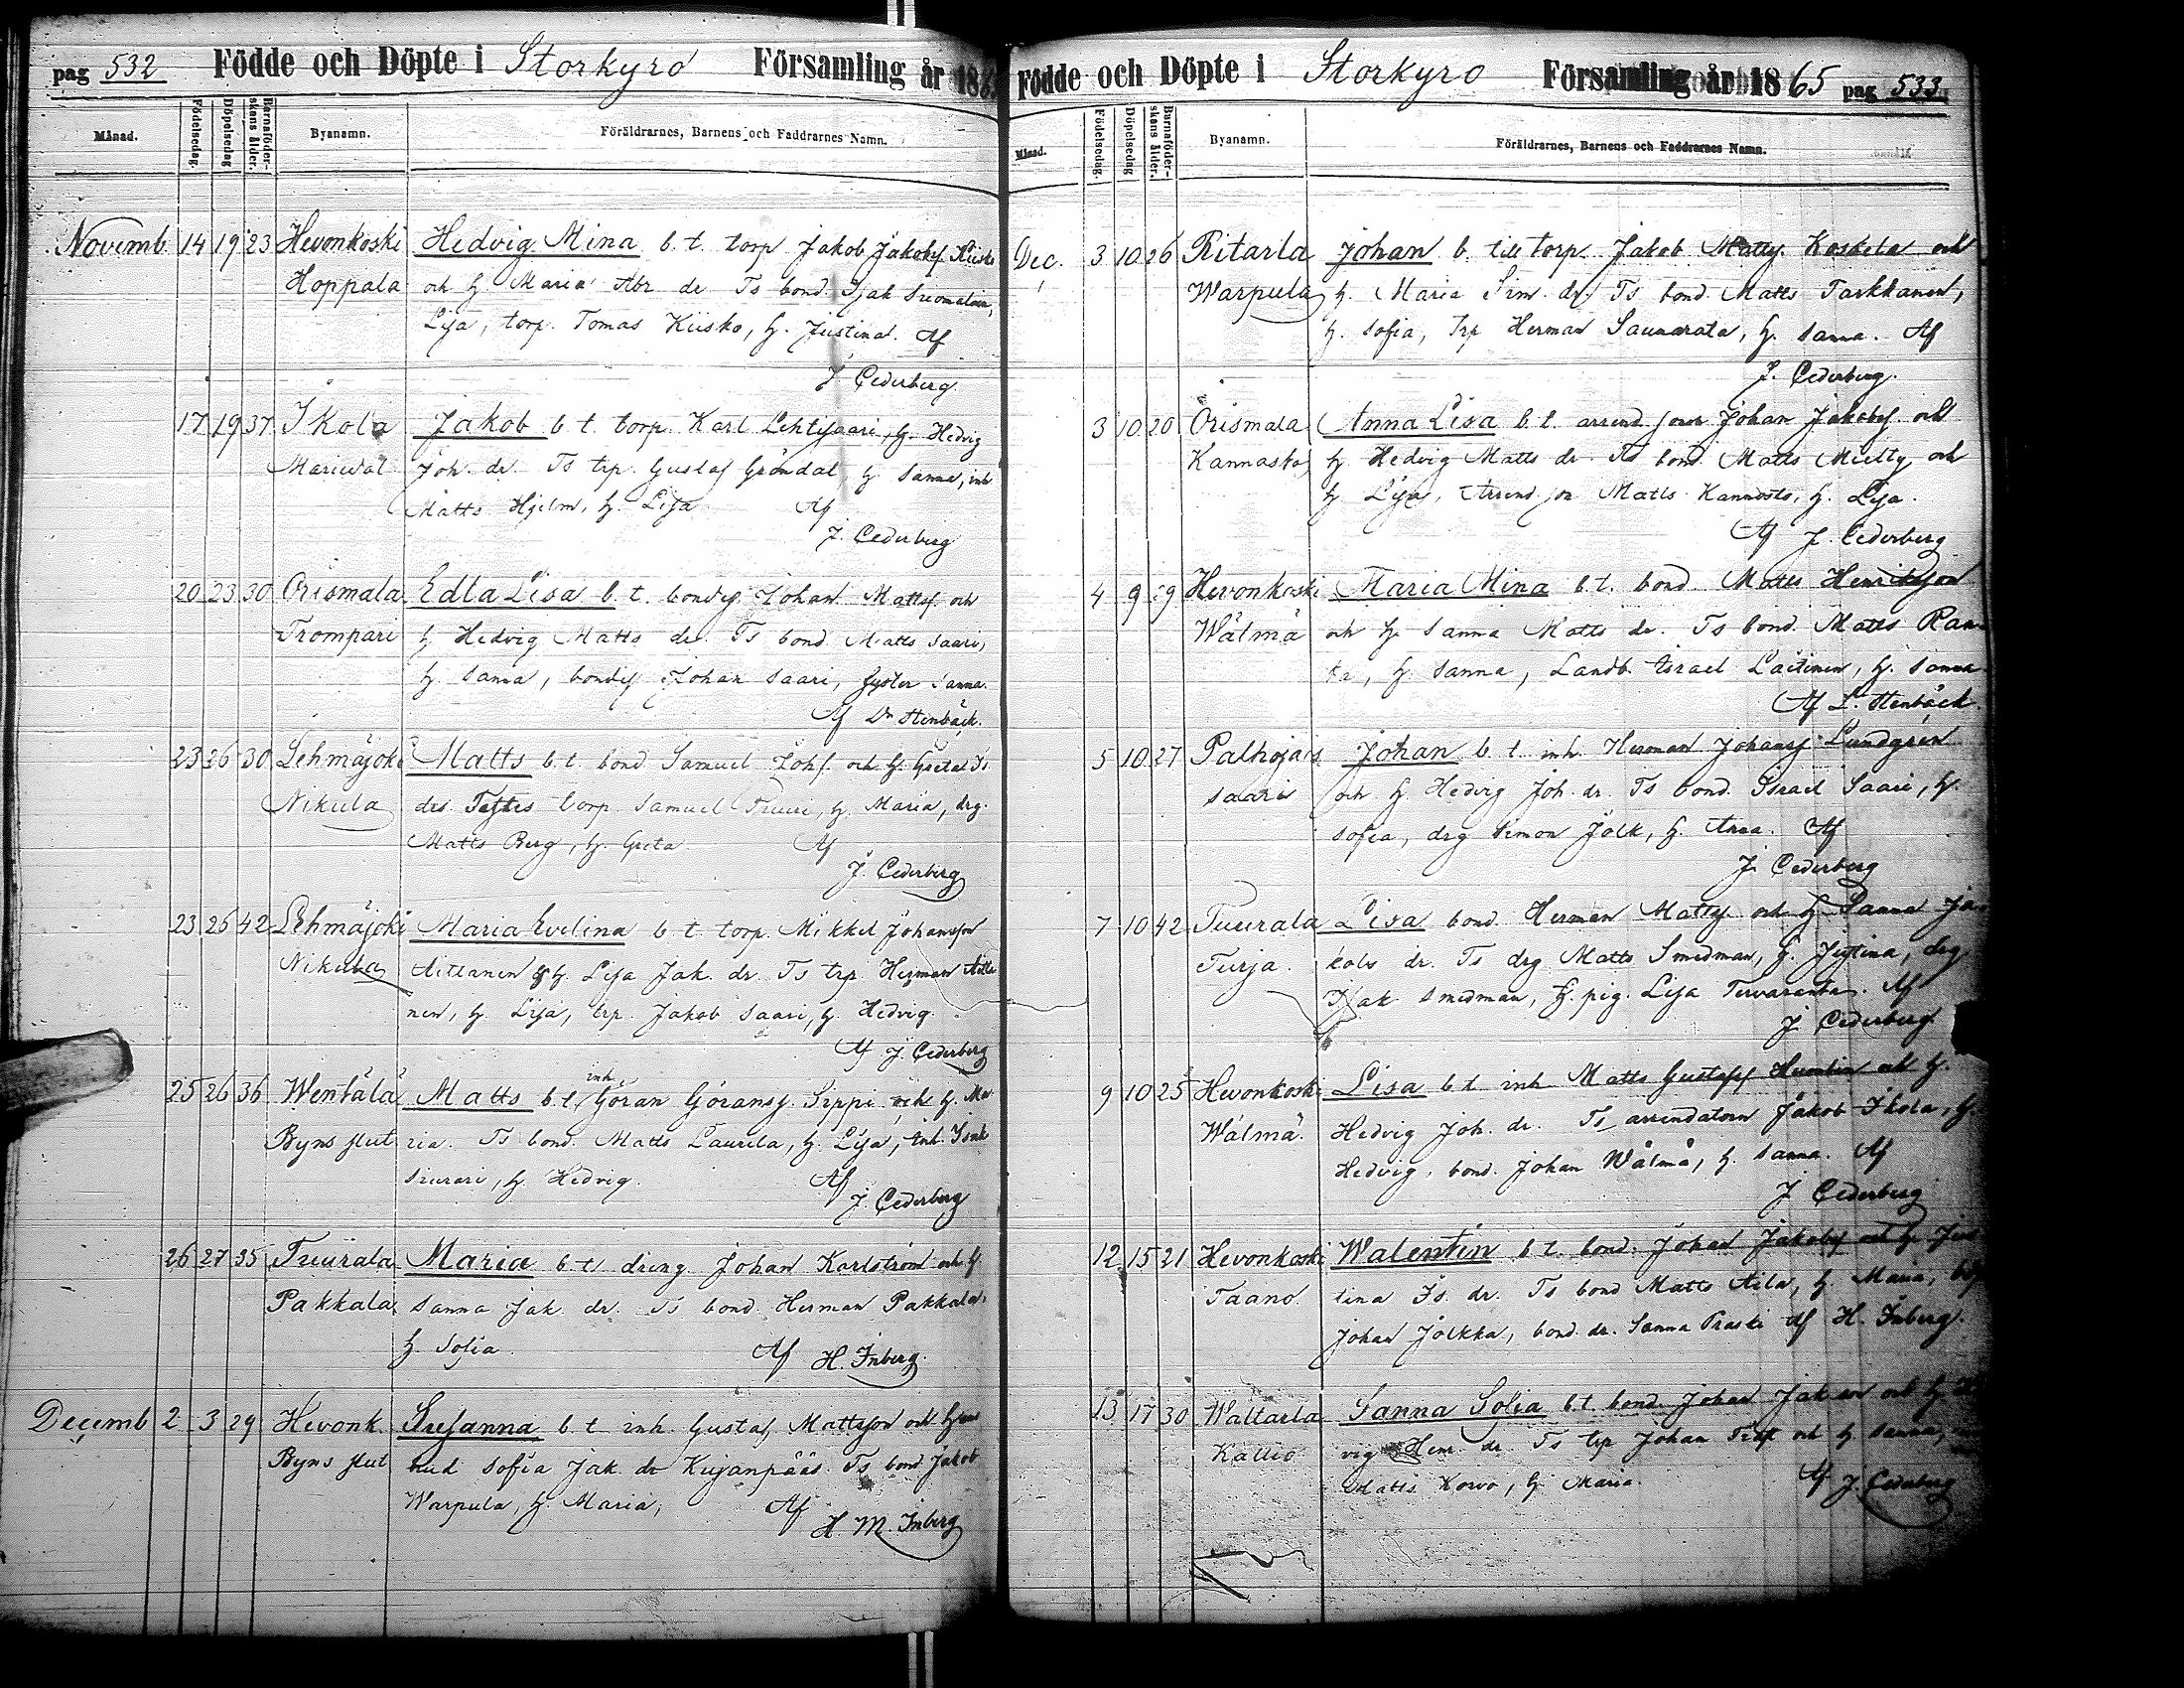 pag 532 Födde och Döpte i Storkyro Församling år 186
Månad. Födelsedag. Döpelsedag Barnaföder-skans ålder. Byanamn. Föräldrarnes, Barnens och Faddrarnes Namn.
Novemb. 14 19 23 Hevonkoski Hedvig Mina b. t. torp Jakob Jakobsf Kiisko
Hoppala och h. Maria Abr. dr. Ts bond. Isak
Lisa, torp. Tomas Kiisko, h. Justina. Af
J. Cederberg.
17 19 37 Ikola Jakob b t. torp. Karl Lehtisaari, h. Hedvig
Joh. dr. Ts trp. Gustaf Gröndal, h. Sanna, inh
Matts Hjelm, h. Lisa Af
J. Cederberg
20 23 30 Orismala Edla Lisa b. t. bondes. Johan Mattsf. och
Trompari h. Hedvig Matts dr. Ts bond. Matts Saari,
h. Sanna, bondes. Johan Saari, syster Sanna.
Af Dr Stenbäck.
23 26 30 Lehmäjoki Matts b. t. bond. Samuel Johsf. och h. Greta Is
Nikula drs. Testes torp. Samuel h. Maria, drg.
Matts Berg, h. Greta Af
J. Cederberg
23 26 42 Lehmäjoki Maria Evelina b. t. torp. Mikkel Johansson
Nikula Aittanen h. Lisa Jak. dr. Ts trp. Herman Aitta
nen, h. Lisa, trp. Jakob Saari, h. Hedvig.
Af J. Cederberg
inh
25 26 36 Wentälä Matts b. t. Göran Göransf. Sippi och h. Ma
Byns slut ria. Ts bond. Matts Laurila, h. Lisa, inh. Isak
h. Hedvig. Af
J. Cederberg
26 27 35 Tuurala Maria b. t. dreng. Johan Karlström och h.
Pakkala Sanna Jak. dr. Ts bond. Herman Pakkala,
h. Sofia. Af H. Inberg.
Decemb 2 3 29 Hevonk. Susanna b. t. inh. Gustaf Mattsson och h
Byns slut Sofia Jak. dr Kujanpää. Ts bond Jakob
Warpula, h. Maria, Af
H. M. Inberg
Födde och Döpte i Storkyro Församling år 1865 pag 533.
Månad. Födelsedag. Döpelsedag Barnaföder-skans ålder. Byanamn. Föräldrarnes, Barnens och Faddrarnes Namn.
Dec. 3 10 26 Ritarla Johan b. till torp. Jakob Mattsf. Koskela och
Warpula h. Maria Sim. dr. Ts bond. Matts Tarkkanen,
h. Sofia, Trp Herman h. Sanna. Af
J. Cederberg.
3 10 20 Orismala Anna Lisa b. t. arrend Johan Jakobsf. och
Kannasto h. Hedvig Matts dr. Ts bond. Matts Mielty och
h. Lisa, Arrend. Matts Kannasto, h. Lisa.
Af J. Cederberg
4 9 Hevonkoski Maria Mina b. t. bond. Matts Henriksson
Wälmä och h. Sanna Matts dr. Ts bond. Matts Ran
ta, h. Sanna, Landb. Israel Laitinen, h. Sanna
Af L. Stenbäck.
5 10 27 Palhojais Johan b. t. inh. Herman Johansf Lundgren
saari och h. Hedvig Joh. dr. Ts bond. Israel Saari, h.
Sofia, drg Simon Jolk, h. Anna. Af
J. Cederberg
7 10 42 Tuurala Lisa bond. Herman Mattsf. och h. Sanna Ja
Turja. kobs dr. Ts drg Matts Smedman, h. Justina, drg
Isak Smedman, pig. Lisa Tervaranta. Af
J. Cederberg.
9 10 25 Hevonkoski Lisa b t. inh Matts Gustafsf och h.
Wälmä. Hedvig Joh. dr. Ts arrendatorn Jakob Ikola, h.
Hedvig, bond. Johan Wälmä, h. Sanna. Af
J. Cederberg
12 15 21 Hevonkoski Walentin b t. bond. Johan Jakobsf och h. Jus
Taano. tina Is. dr. Ts bond Matts Aila, h. Maria,
Johan Jolkka, bond. dr. Sanna Praski Af H. Inberg.
13 17 30 Waltarla Sanna Sofia b.t. bond. Johan och h.
Kallio vig Henr. dr. Ts trp Johan och h. Sanna,
Matts Korvo, h. Maria. Af J. Cederberg